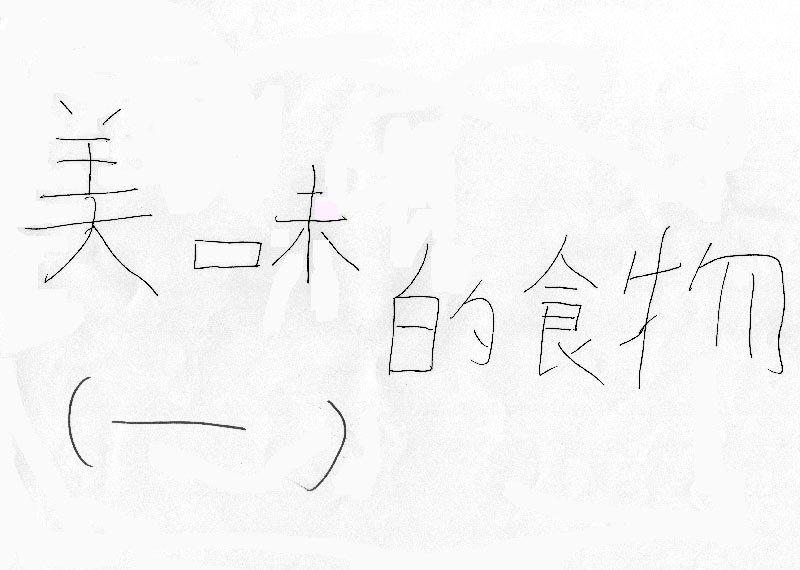 美味的食物
(一)